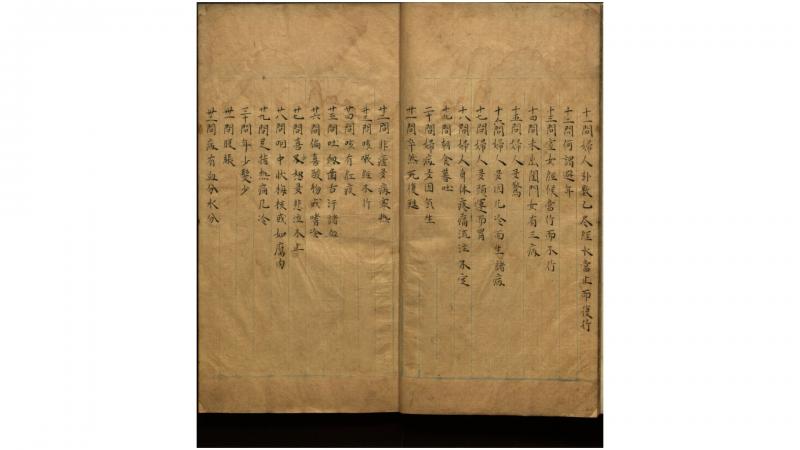 十一問婦人卦數已尽經水當止而復行
十二問何謂避年
十三問室女經候當行而不行
十四問未出閨門女有三病
十五問婦人多驚
十六問婦人多因冷而生諸病
十七問婦人多頭運而冒
十八問婦人身体疼痛流注不定
十九問朝食暮吐
二十問婦病多因氣生
廿一問卒然死復甦
廿二問非瘧多病寒熱
廿三問咳嗽經不行
廿四問咳有紅痰
廿五問吐衂齒舌汗諸血
廿六問偏喜酸物或嗜冷
廿七問喜多悲泣不止
廿八問咽中狀梅核或如腐肉
廿九問足指熱痛冷
三十問年少髮少
卅一問腹脹
卅二問病有血分水分